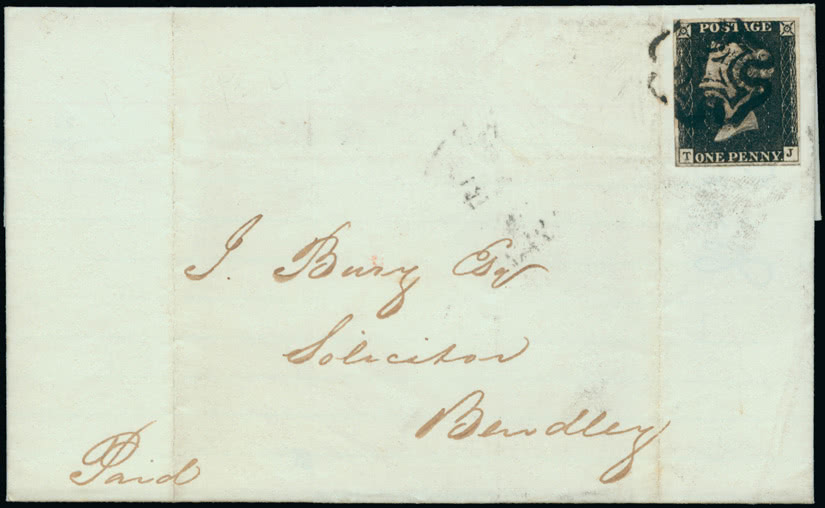 POSTAGE
T ONE PENNY J
J. Bury Esqr
Solicitor
Bewdley
Paid